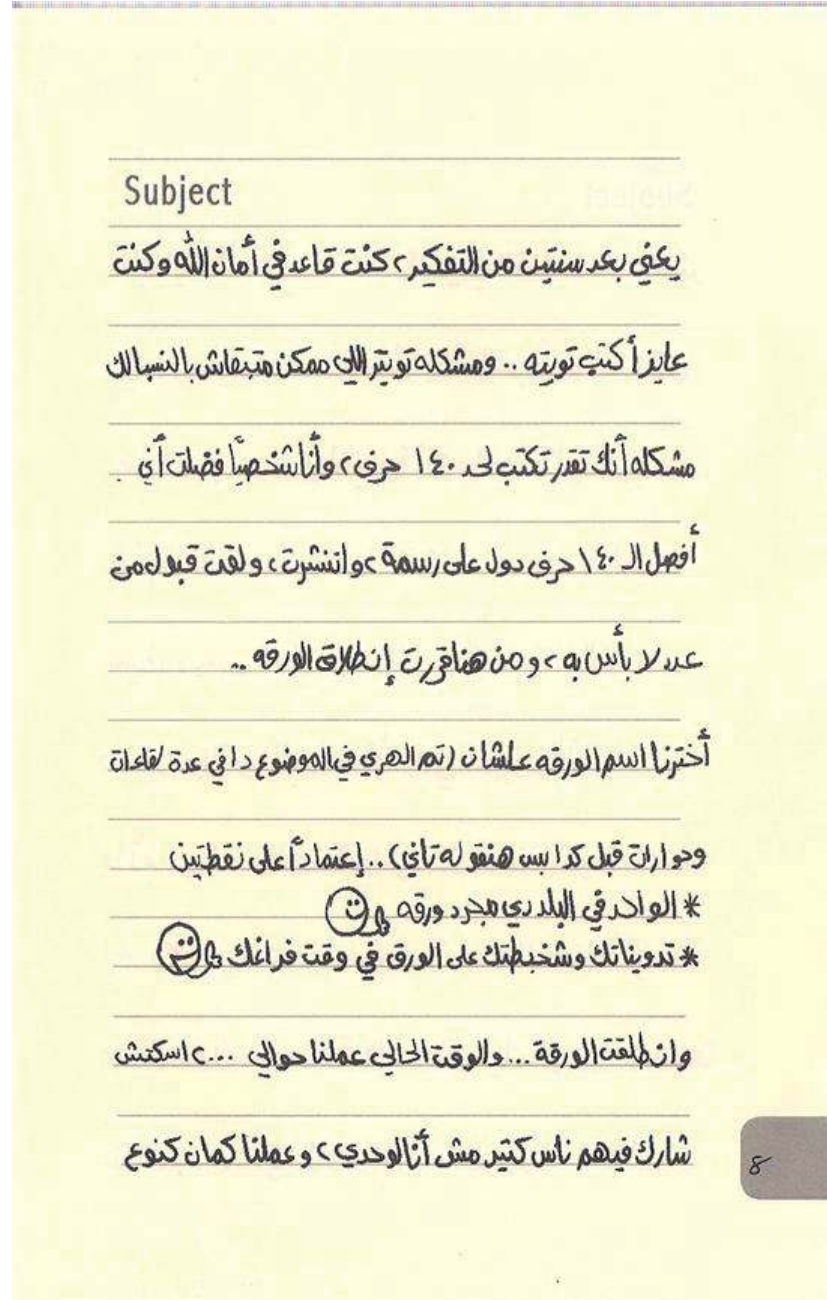 Subject
يعني بعد سنتين من التفكير، كنت قاعد في أمان الله وكنت
عايز أكتب تويته .. ومشكله تويتر اللي ممكن متبقاش بالنسبالك
مشكله أنك تقدر تكتب لحد ١٤٠ حرف، وأنا شخصياً فضلت أني
أفصل الـ ١٤٠ حرف دول على رسمة، واتنشرت، ولقت قبول من
عدد لا بأس به، ومن هنا قررت إنطلاق الورقه ..
أخترنا اسم الورقه علشان (تم الهري في الموضوع دا في عدة لقاءات
وحوارات قبل كدا بس هنقوله تاني) .. إعتماداً على نقطتين
* الواحد في البلد دي مجرد ورقه
* تدويناتك وشخبطتك على الورق في وقت فراغك
وانطلقت الورقة ... والوقت الحالي عملنا حوالي ...، اسكتش
شارك فيهم ناس كتير مش أنا لوحدي، وعملنا كمان كنوع
8